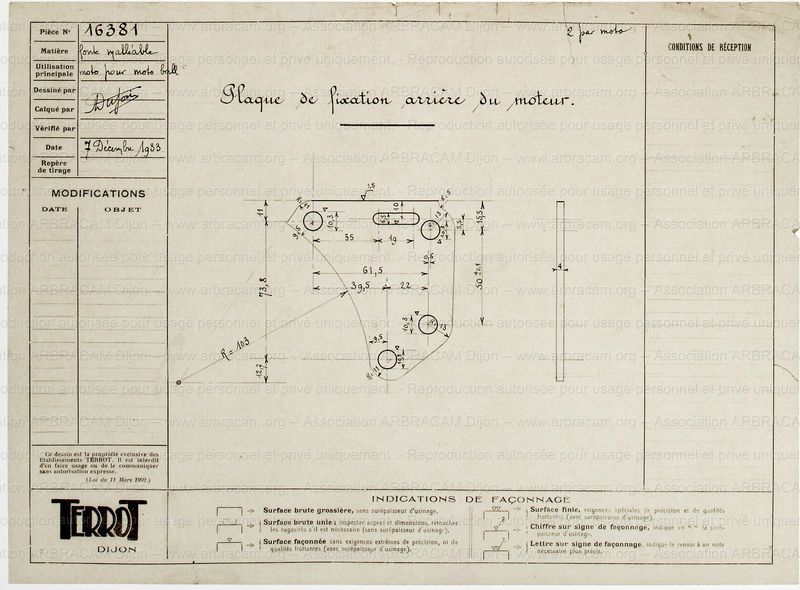 Pièce N° 16381
Matière fonte malléable
Utilisation principale moto pour moto ball
Dessiné par
Calqué par
Vérifié par
Date 7 Décembre 1933
Repère de tirage
MODIFICATIONS
DATE OBJET
2 par moto
CONDITIONS DE RÉCEPTION
Plaque de fixation arrière du moteur.
1,5
11
10,3
10
15,5
5,5
35 19
61,5
0,6
39,5 22
73,8
50 ±0,1
4
R = 103
10,3
9,5
12,7
Ce dessin est la propriété exclusive des
Etablissements TERROT. Il est interdit
d'en faire usage ou de le communiquer
sans autorisation expresse.
(Loi du 11 Mars 1902.)
TERROT
DIJON
INDICATIONS DE FAÇONNAGE
Surface brute grossière, sans surépaisseur d'usinage.
Surface brute unie : respecter aspect et dimensions, retoucher
les rugosités s'il est nécessaire (sans surépaisseur d'usinage).
Surface façonnée sans exigences extrêmes de précision, ni de
qualités frottantes (avec surépaisseur d'usinage).
Surface finie, exigences spéciales de précision et de qualités
frottantes (avec surépaisseur d'usinage).
Chiffre sur signe de façonnage, indique la surépaisseur d'usinage.
Lettre sur signe de façonnage, indique le renvoi à une note
nécessaire plus précis.
www.arbracam.org – Association ARBRACAM Dijon – Reproduction autorisée pour usage personnel et privé uniquement.